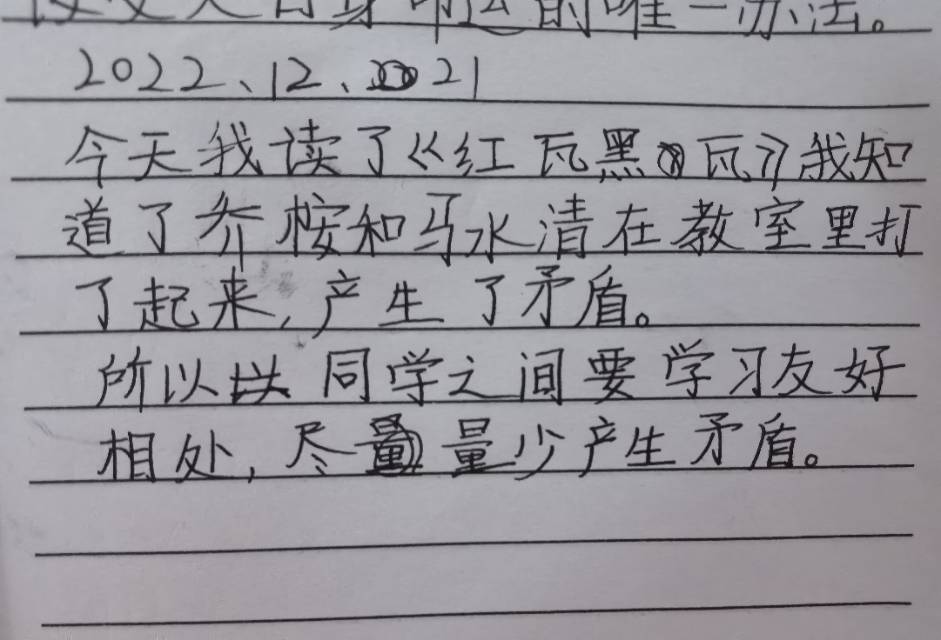 自身命运的唯一办法。
2022、12、21
今天我读了《红瓦黑瓦》我知
道了乔桉和马水清在教室里打
了起来,产生了矛盾。
所以同学之间要学习友好
相处,尽量少产生矛盾。